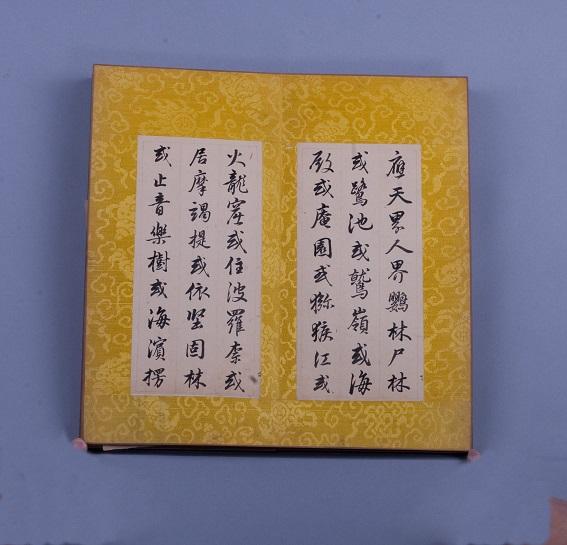 應天界人界鸚林尸林
或鷺池或鷲嶺或海
殿或庵園或猕猴江或
火龍窟或住波羅柰或
居摩竭提或依堅固林
或止音樂樹或海濱楞